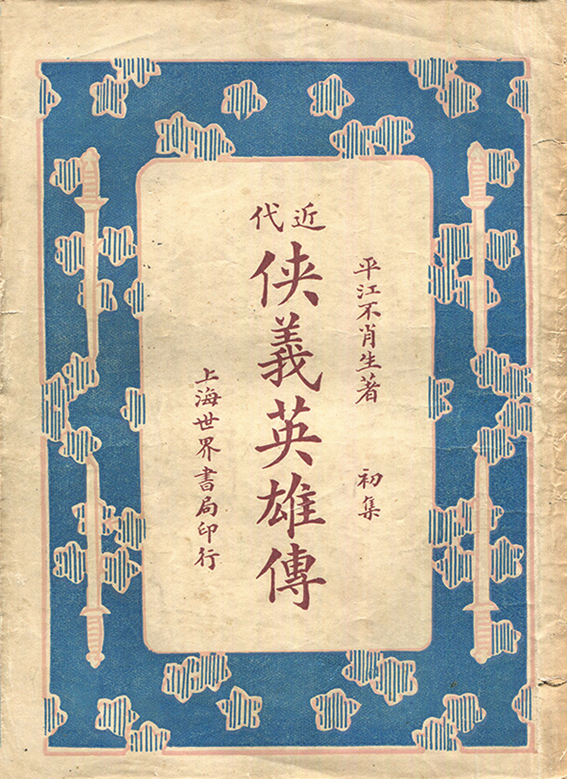 平江不肖生著　初集
近代
俠義英雄傳
上海世界書局印行